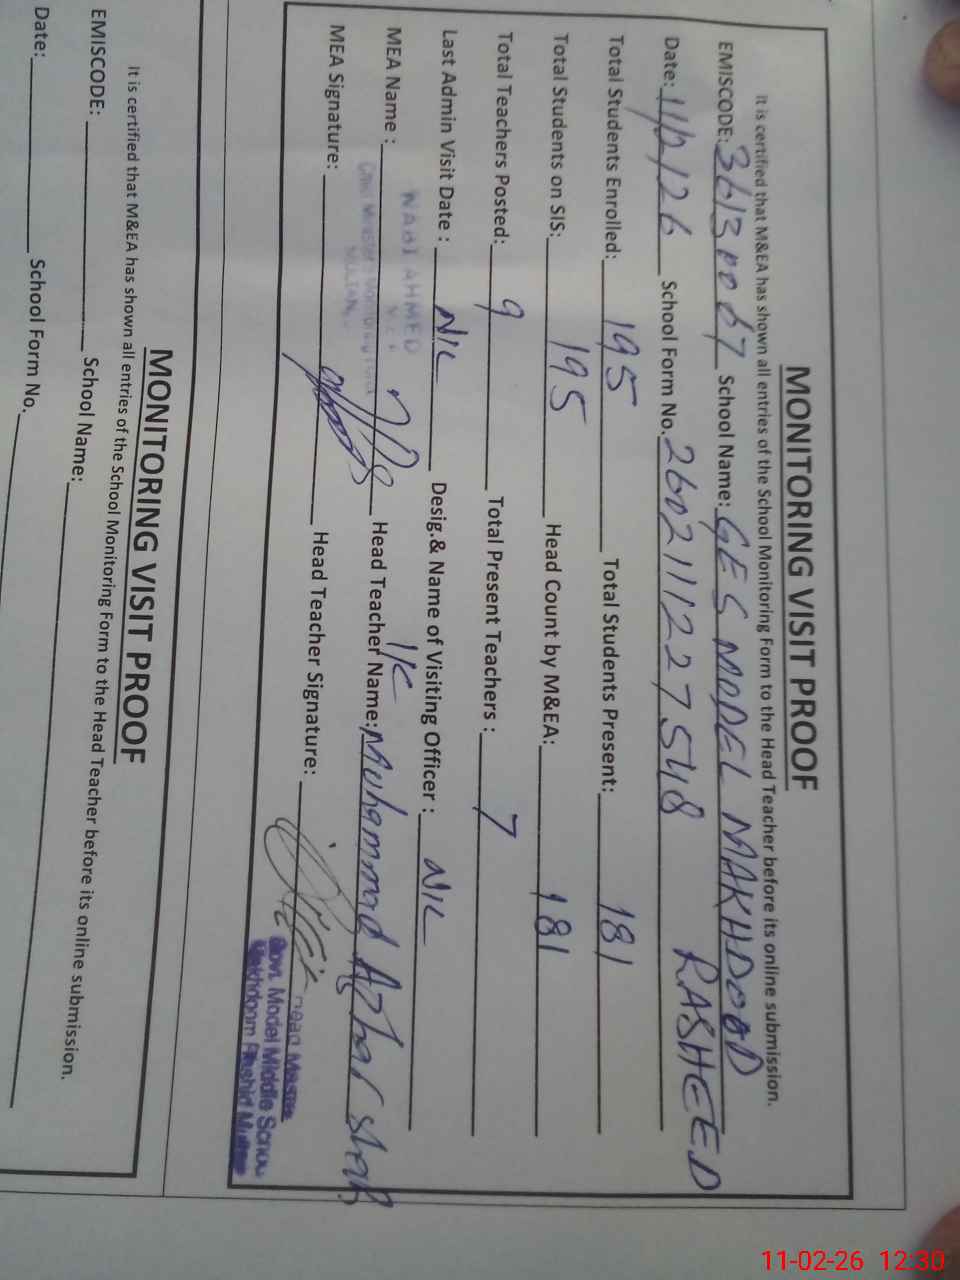 MONITORING VISIT PROOF
It is certified that M&EA has shown all entries of the School Monitoring Form to the Head Teacher before its online submission.
EMISCODE: 36130067 School Name: GES MODEL MAKHDOOD
RASHEED
Date: 11/2/26 School Form No. 2602111227548
Total Students Enrolled: 195 Total Students Present: 181
Total Students on SIS: 195 Head Count by M&EA: 181
Total Teachers Posted: 9 Total Present Teachers : 7
Last Admin Visit Date : NIL Desig.& Name of Visiting Officer : NIL
NABI AHMED
MEA Name : Head Teacher Name: Muhammad Azhar Shah
Chief Minister's Monitoring Force
MULTAN
MEA Signature: Head Teacher Signature:
Head Master
Govt. Model Middle School
Makhdoom Rashid Multan
MONITORING VISIT PROOF
It is certified that M&EA has shown all entries of the School Monitoring Form to the Head Teacher before its online submission.
EMISCODE: School Name:
Date: School Form No.
11-02-26 12:30